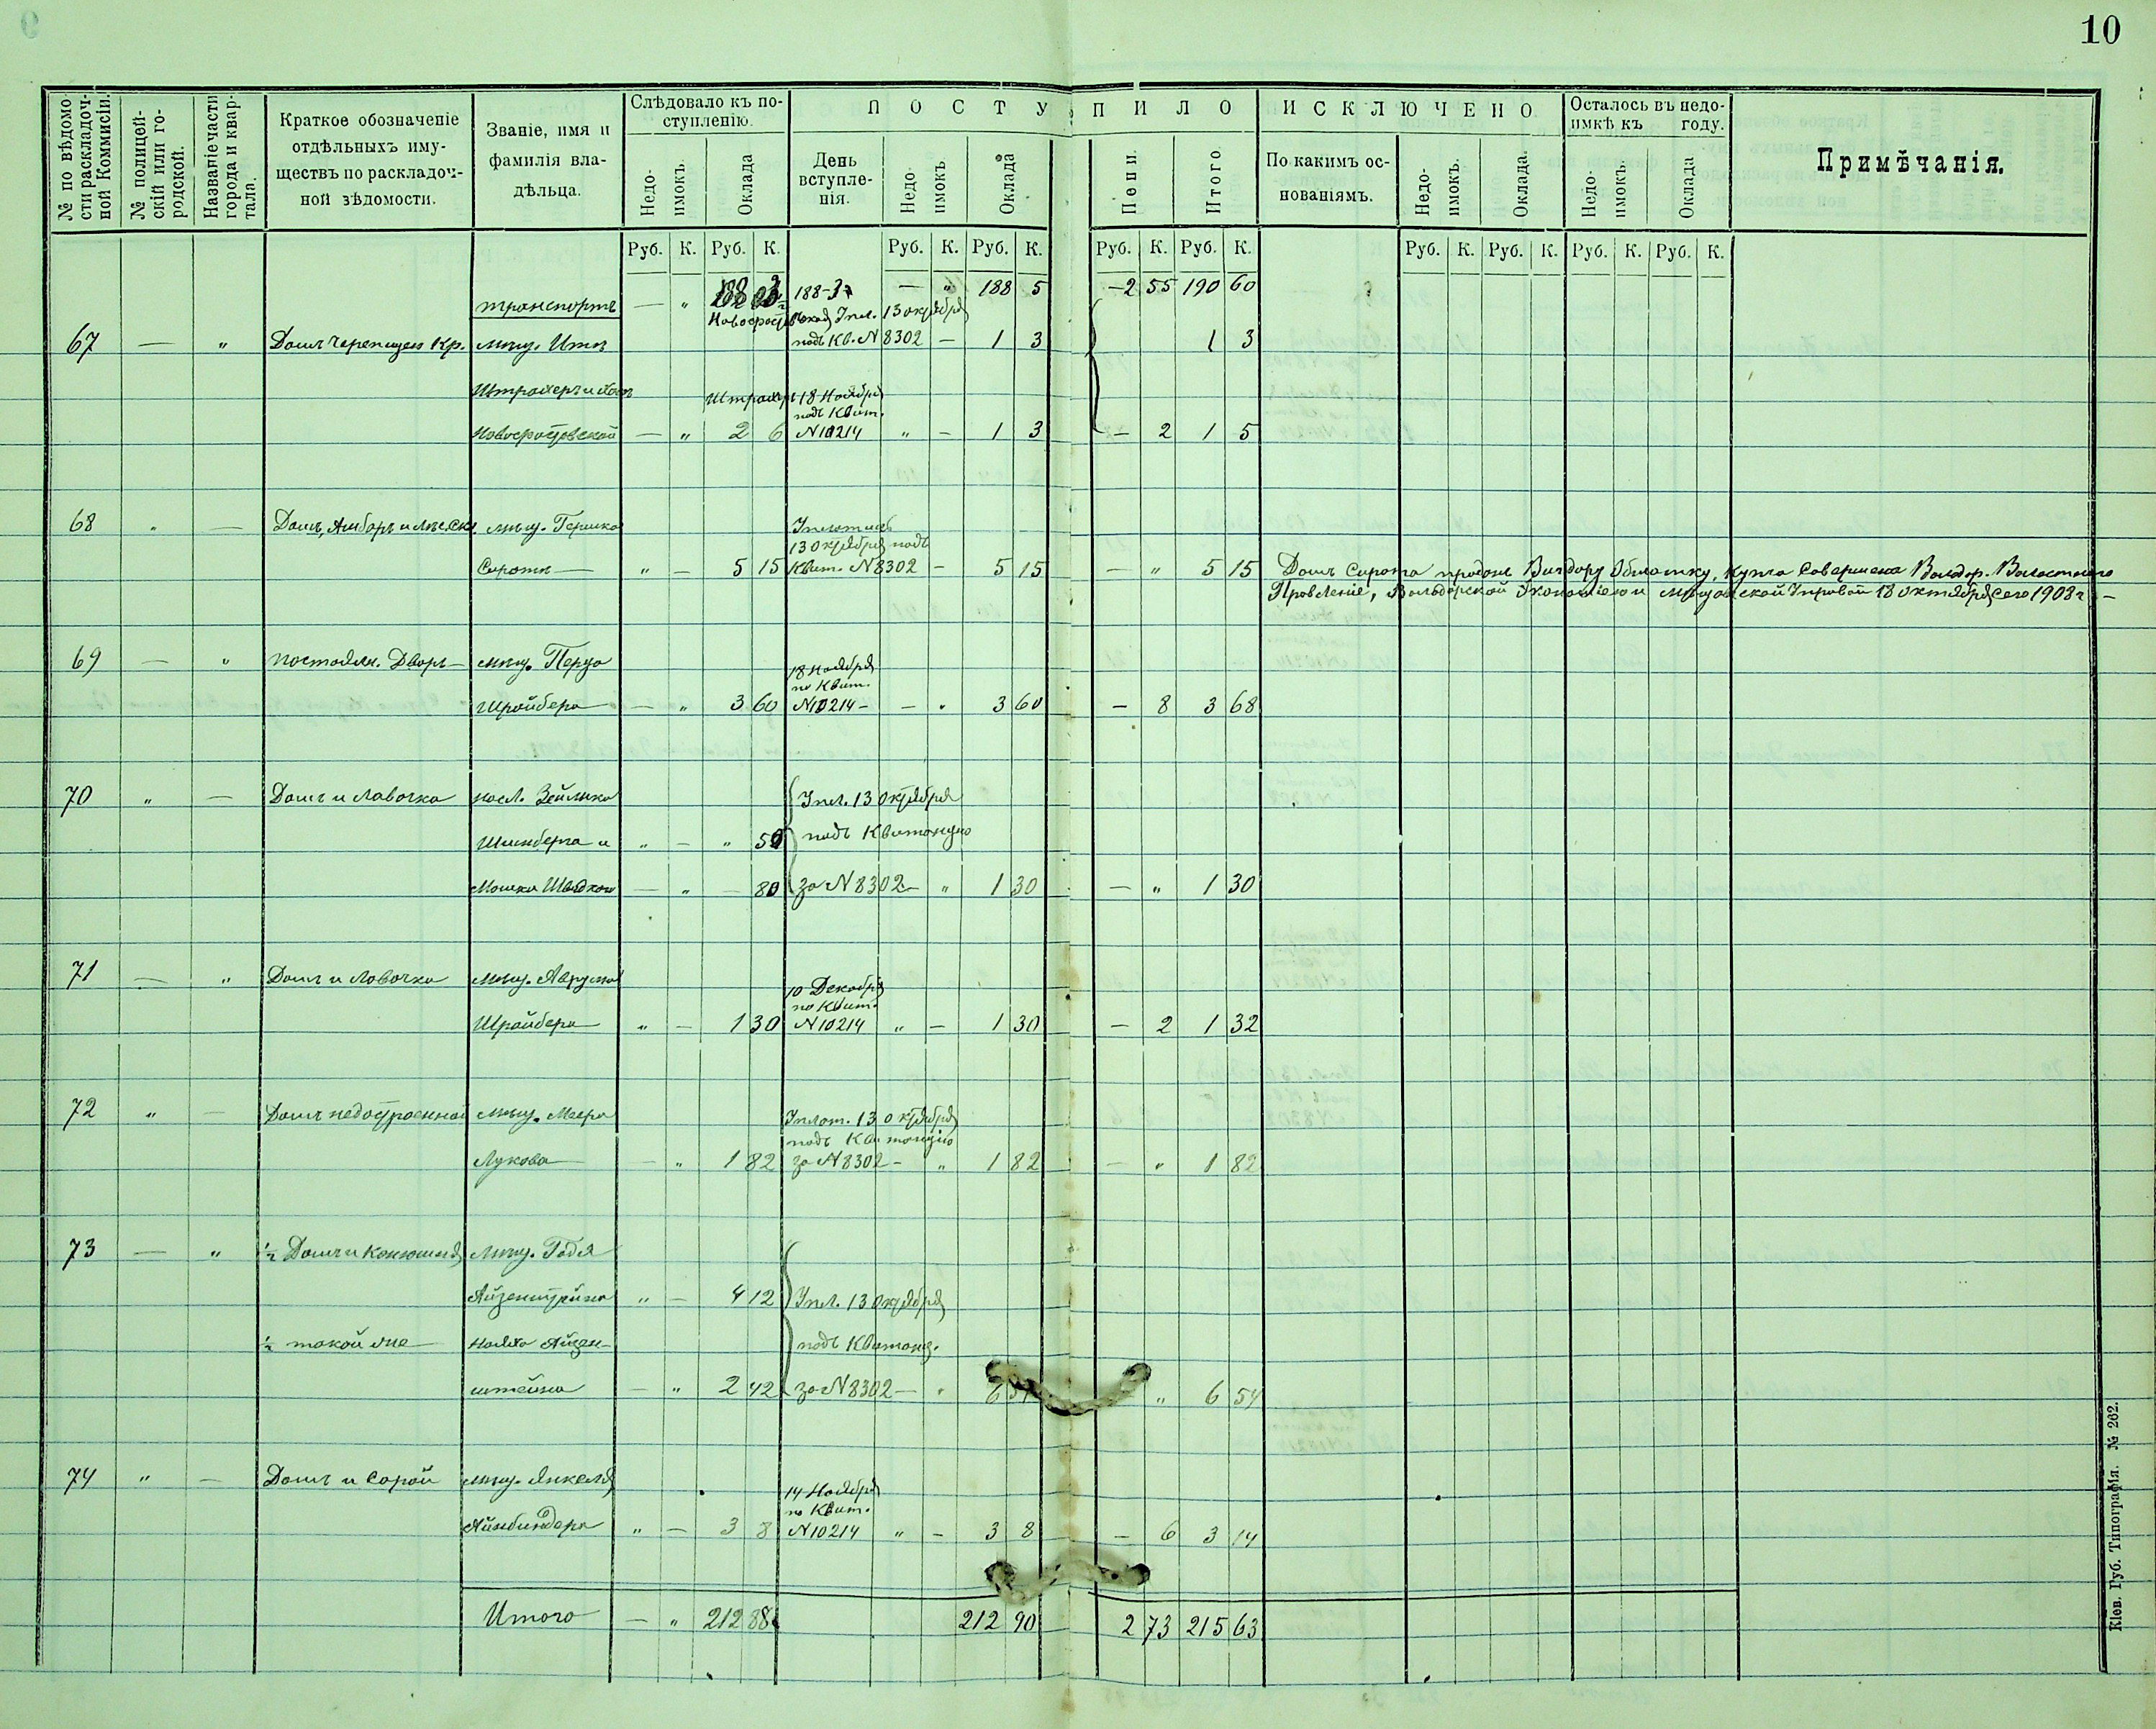 10
№ по вѣдомости раскладочной Коммисіи.
№ полицейскій или городской.
Названіе части города и квартала.
Краткое обозначеніе отдѣльныхъ имуществъ по раскладочной вѣдомости.
Званіе, имя и фамилія владѣльца.
Слѣдовало къ поступленію.
ПОСТУПИЛО
ИСКЛЮЧЕНО
Осталось въ недоимкѣ къ году.
Примѣчанія.
Недоимокъ. Оклада
День вступленія. Недоимокъ Оклада Пени. Итого.
По какимъ основаніямъ. Недоимокъ. Оклада. Недоимокъ. Оклада
Руб. К. Руб. К. Руб. К. Руб. К. Руб. К. Руб. К. Руб. К. Руб. К. Руб. К. Руб. К.
транспортъ — " 188 — " 188 5 — 2 55 190 60
Упл. 13 октября
67 — " Домъ Черепицей Кр. мѣщ. подъ Кв. N 8302 — 1 3 1 3
18 Ноября
подъ Квит.
— " 2 6 N 10214 " — 1 3 — 2 1 5
68 " — Домъ, Амбаръ мѣщ. Гершко
13 Октября подъ
Сирота — " — 5 15 Квит. N 8302 — 5 15 — " 5 15 Домъ Сирота
18 октября сего 1908 г. —
69 — " постоял. Дворъ — мѣщ.
18 Ноября
по Квит.
Шрайбера — " 3 60 N 10214 — — " 3 60 — 8 3 68
70 " — Домъ и лавочка насл. Зейлика Упл. 13 Октября
и " — " 50 подъ Квитанцію
Мошка — " — 80 за N 8302 — " 1 30 — " 1 30
71 — " Домъ и лавочка мѣщ. Аврума
10 Декабря
по Квит.
Шрайбера " — 1 30 N 10214 " — 1 30 — 2 1 32
72 " — Домъ недостроенной мѣщ. Меера Уплат. 13 октября
подъ Квитанцію
Лукова — — " 1 82 за N 8302 — " 1 82 — " 1 82
73 — " ½ Домъ и конюшня мѣщ.
Айзенштейна " — 4 12 Упл. 13 Октября
½ такой же — Айзен- подъ Квитанц.
штейна — " 2 42 за N 8302 — " 6 54 " 6 54
74 " — Домъ и Сарай мѣщ. Янкеля
14 Ноября
по Квит.
Айнбиндера " — 3 8 N 10214 " — 3 8 — 6 3 14
Итого — " 212 88 212 90 2 73 215 63
Кіев. Губ. Типографія. № 262.